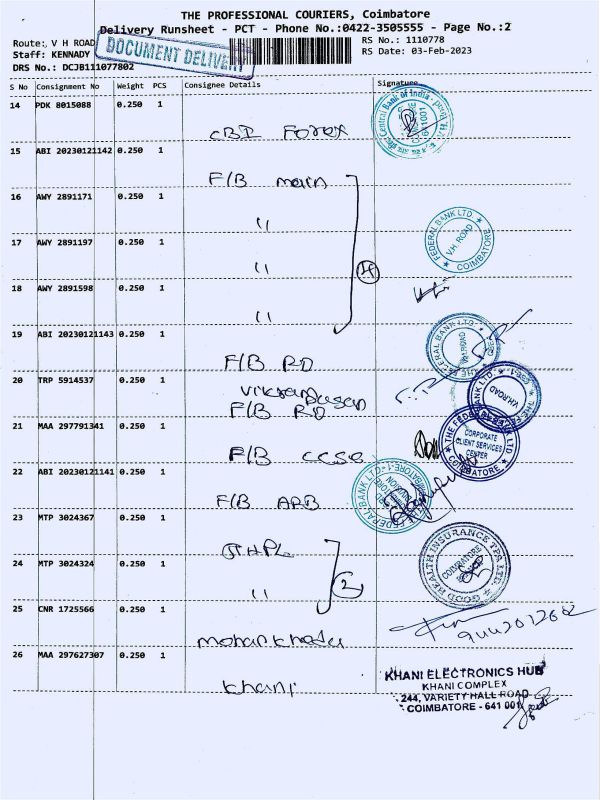 THE PROFESSIONAL COURIERS, Coimbatore
Delivery Runsheet - PCT - Phone No.:0422-3505555 - Page No.:2
Route: V H ROAD
DOCUMENT DELIVERY
RS No.: 1110778
Staff: KENNADY
RS Date: 03-Feb-2023
DRS No.: DCJB111077802
S No Consignment No Weight PCS Consignee Details Signature
14 PDK 8015088 0.250 1
CBI Forex
Central Bank of India
15 ABI 20230121142 0.250 1
F/B main
16 AWY 2891171 0.250 1
"
17 AWY 2891197 0.250 1
"
4
FEDERAL BANK LTD. V.H. ROAD COIMBATORE
18 AWY 2891598 0.250 1
"
19 ABI 20230121143 0.250 1
F/B RD
THE FEDERAL BANK LTD.
20 TRP 5914537 0.250 1
F/B RD
THE FEDERAL BANK LTD. V.H.ROAD
21 MAA 297791341 0.250 1
F/B CCSC
THE FEDERAL BANK LTD CORPORATE CLIENT SERVICES CENTER COIMBATORE
22 ABI 20230121141 0.250 1
F/B APB
FEDERAL BANK LTD
23 MTP 3024367 0.250 1
GHPL
24 MTP 3024324 0.250 1
"
2
GOOD HEALTH INSURANCE TPA LTD. COIMBATORE
25 CNR 1725566 0.250 1
26 MAA 297627307 0.250 1
Khani
KHANI ELECTRONICS HUB
KHANI COMPLEX
244, VARIETY HALL ROAD
COIMBATORE - 641 001